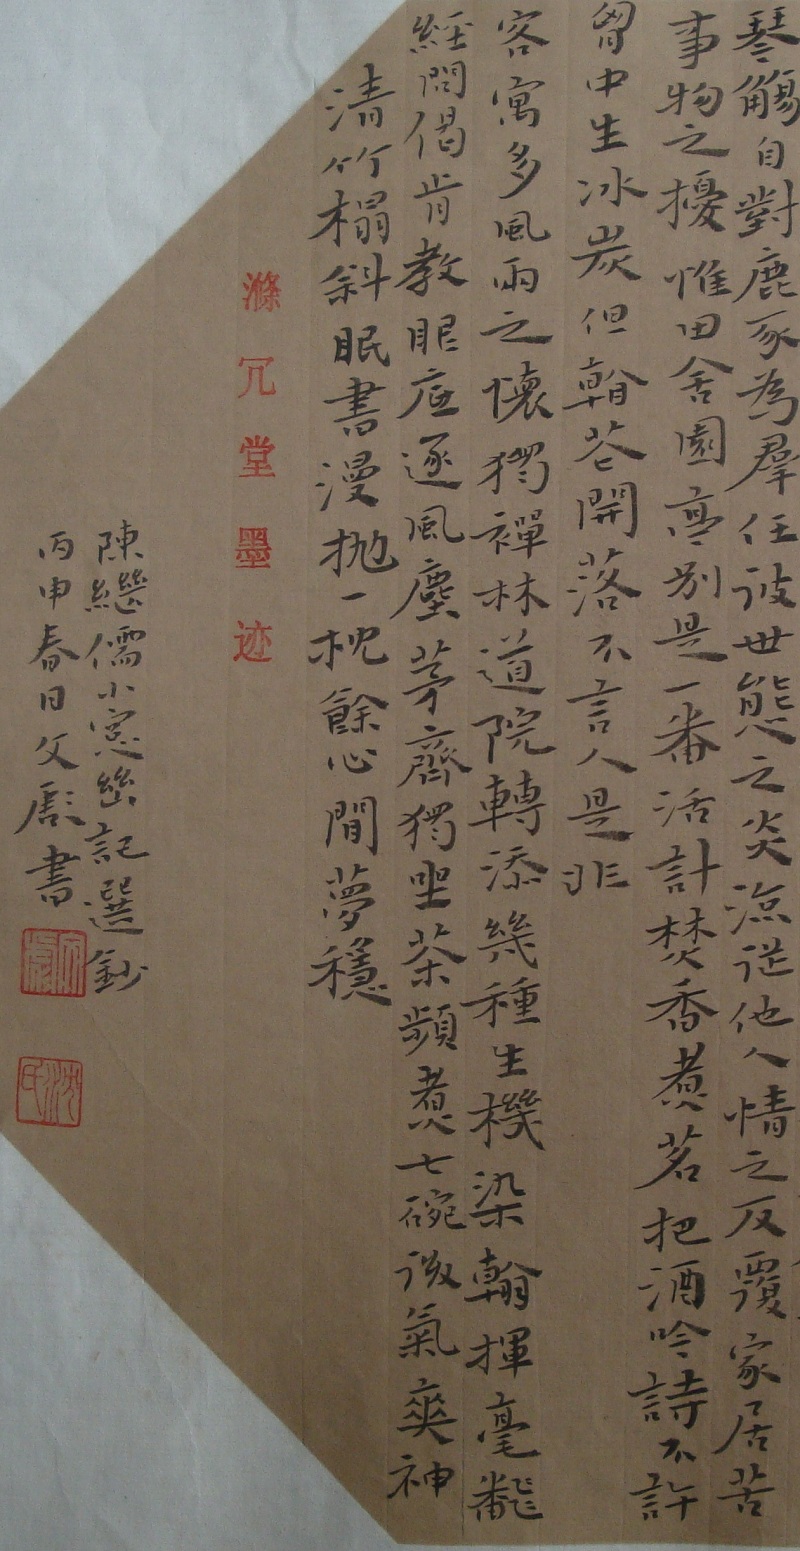 琴觴自對鹿豕為羣任彼世態之炎涼從他人情之反覆家居苦
事物之擾惟田舍園亭別是一番活計焚香煮茗把酒吟詩不許
胷中生冰炭但看花開落不言人是非
客寓多風雨之懷獨禪林道院轉添幾種生機染翰揮毫翻
經問偈肯教眼底逐風塵茅齋獨坐茶頻煮七碗後氣爽神
清竹榻斜眠書漫拋一枕餘心閒夢穩
滌冗堂墨迹
陳繼儒小窗幽記選鈔
丙申春日文書
沈氏